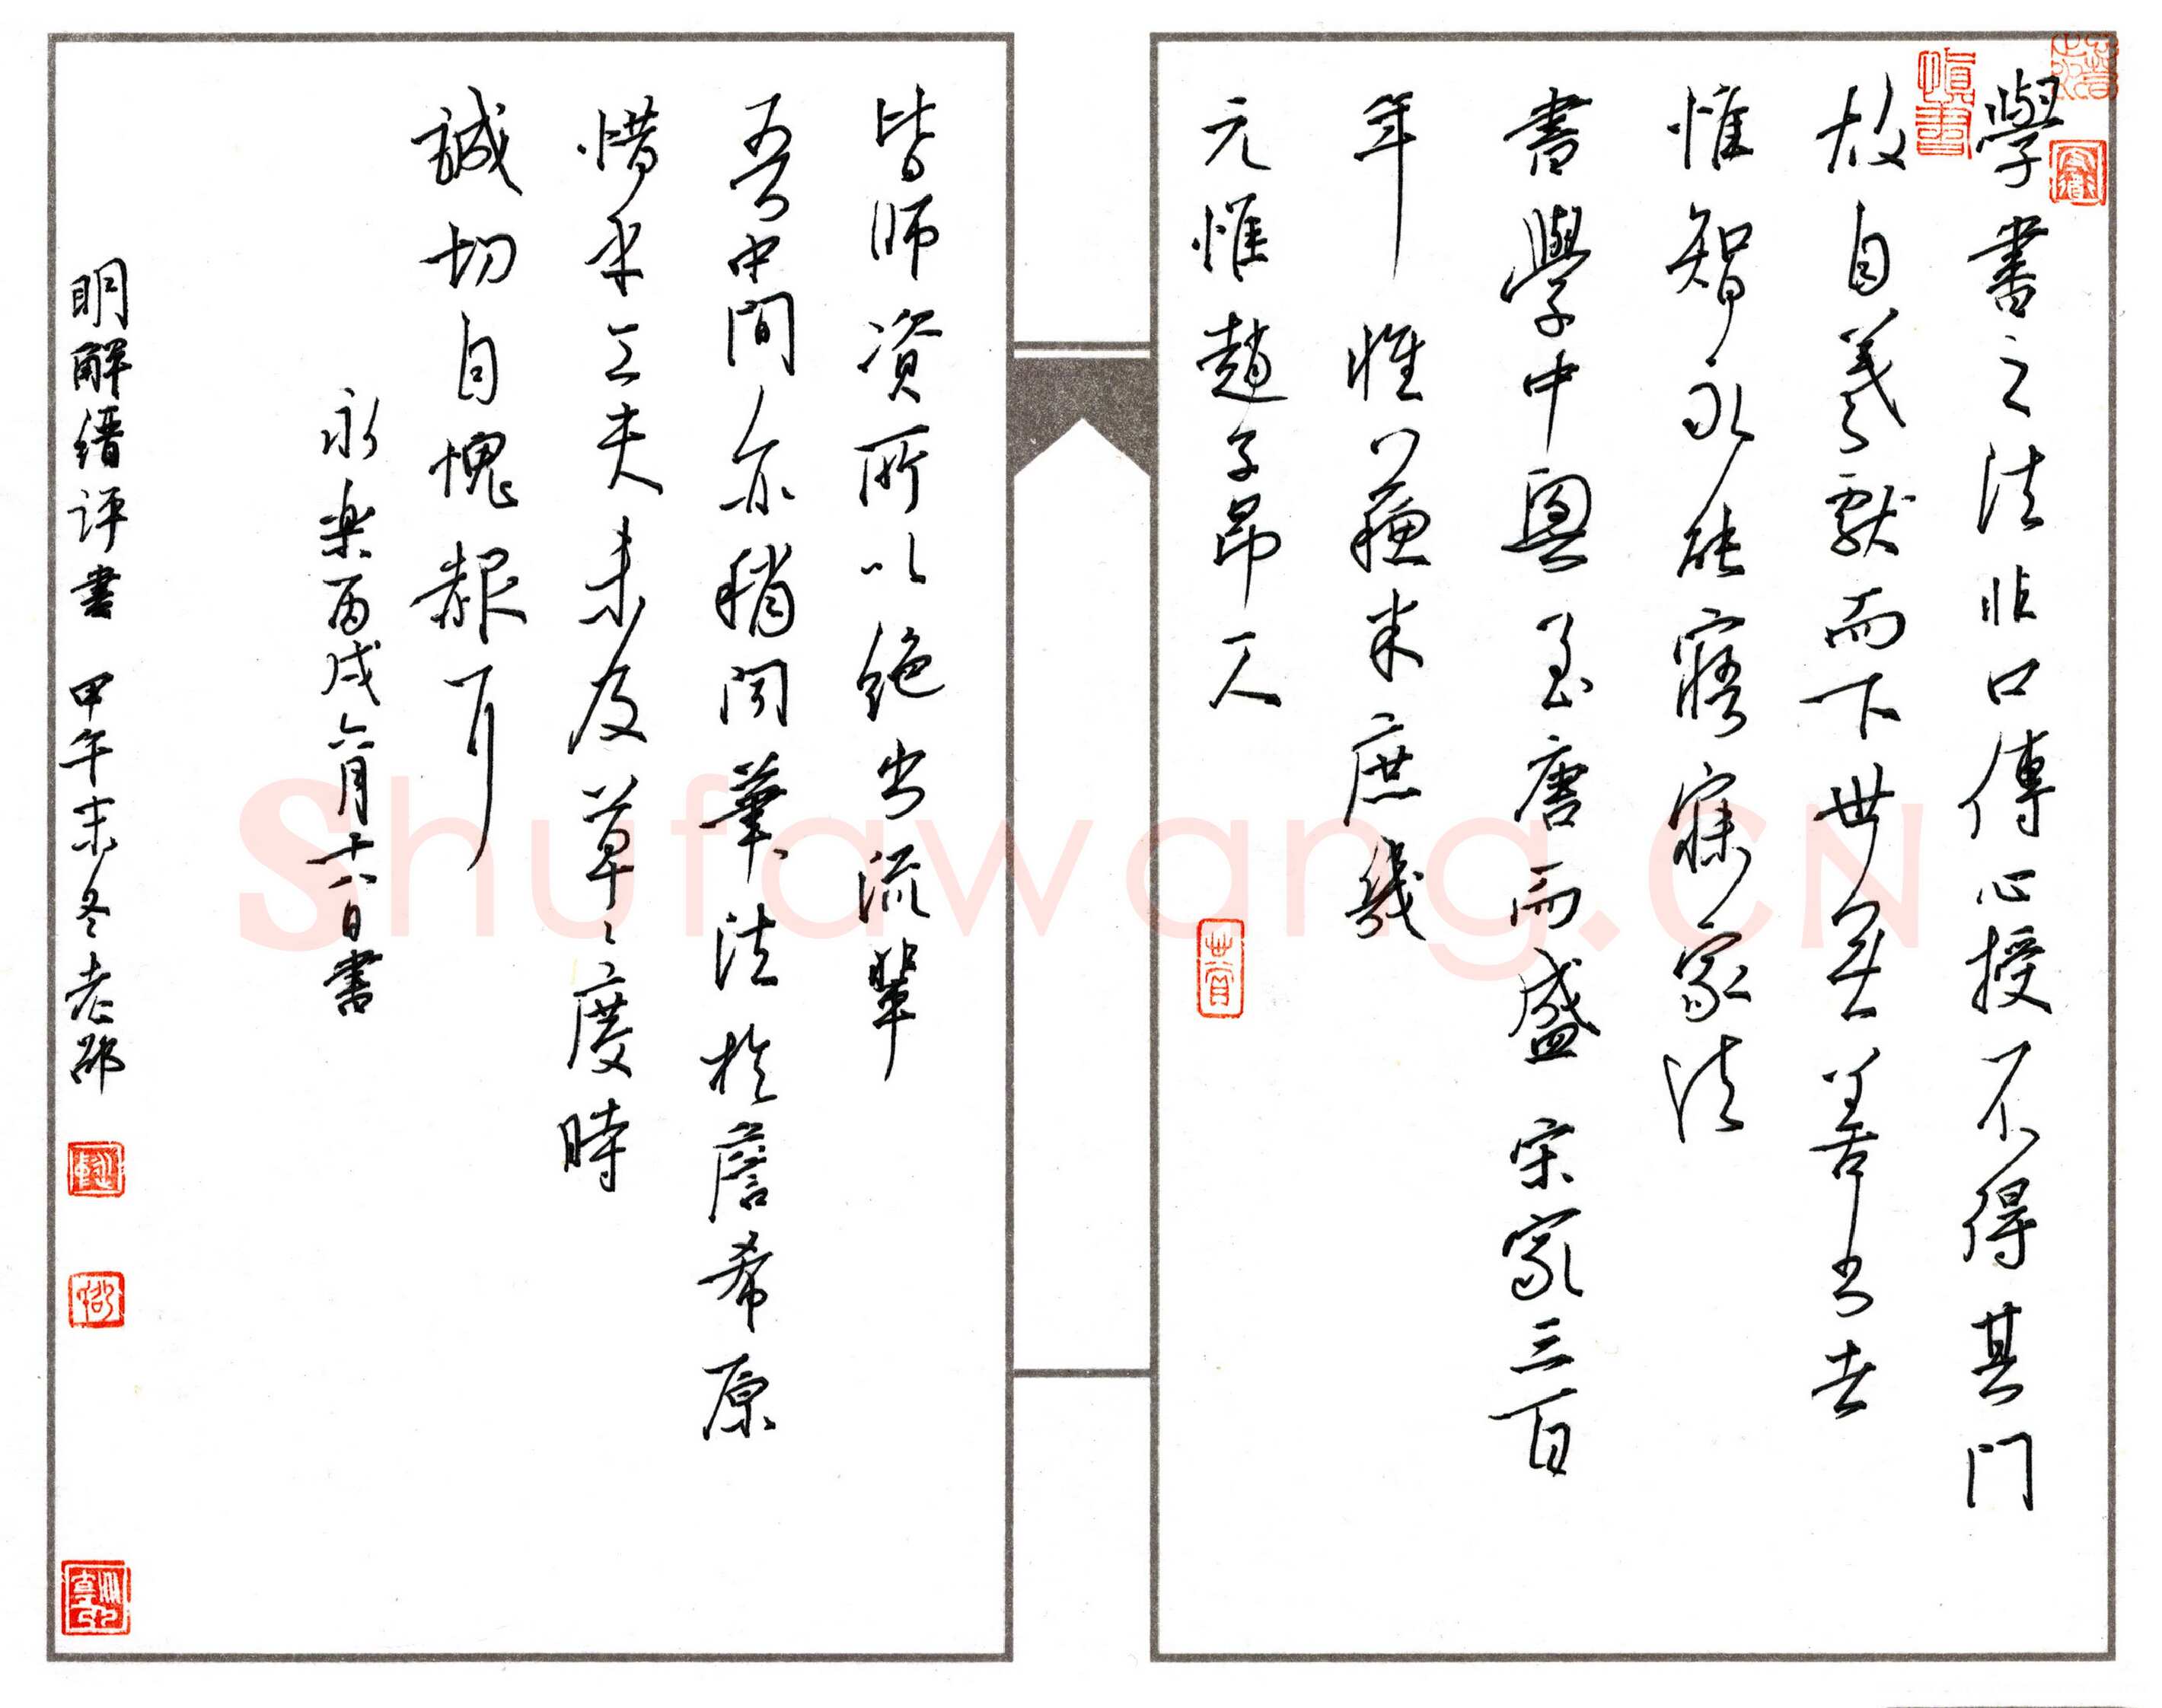 學書之法非口傳心授不得其門
故自羲獻而下世無善書者
惟智永能寤寐家法
書學中興至唐而盛宋家三百
年惟蘇米庶幾
元惟趙子昂一人
皆師資所以絕出流輩
吾中間亦稍聞筆法於詹希原
惜乎工夫未及草々度時
誠切自愧赧耳
永樂丙戌六月十八日書
明解縉評書 甲午末冬老邵
慎書
Shufawang.CN